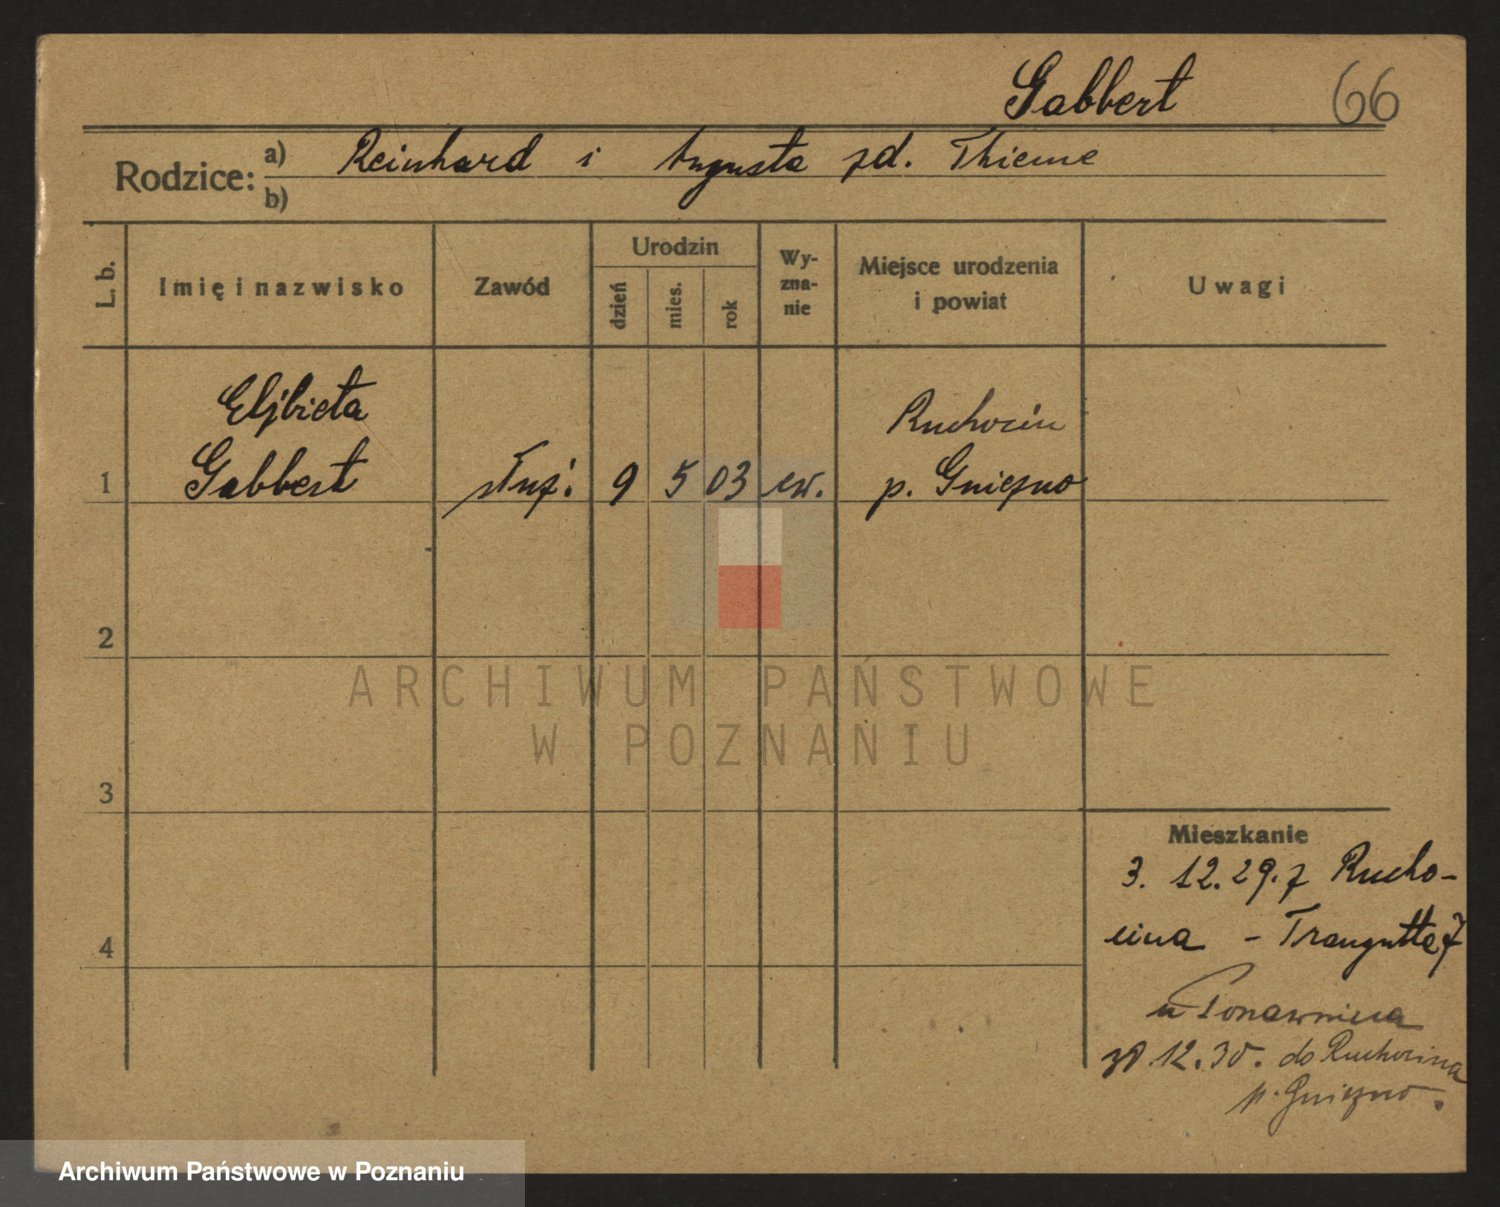 Gabbert 66
Rodzice: a) Reinhard i Augusta zd. Thieme
b)
L. b. Imię i nazwisko Zawód Urodzin dzień mies. rok Wy-zna-nie Miejsce urodzenia i powiat Uwagi
Elżbieta
Gabbert
1 służ. 9 5 03 ew. Ruchocin
p. Gniezno
2
3
4
ARCHIWUM PAŃSTWOWE
W POZNANIU
Mieszkanie
3. 12. 29. z Rucho-
cina - Traugutta 7
u
12. 30. do Ruchocina
p. Gniezno.
Archiwum Państwowe w Poznaniu